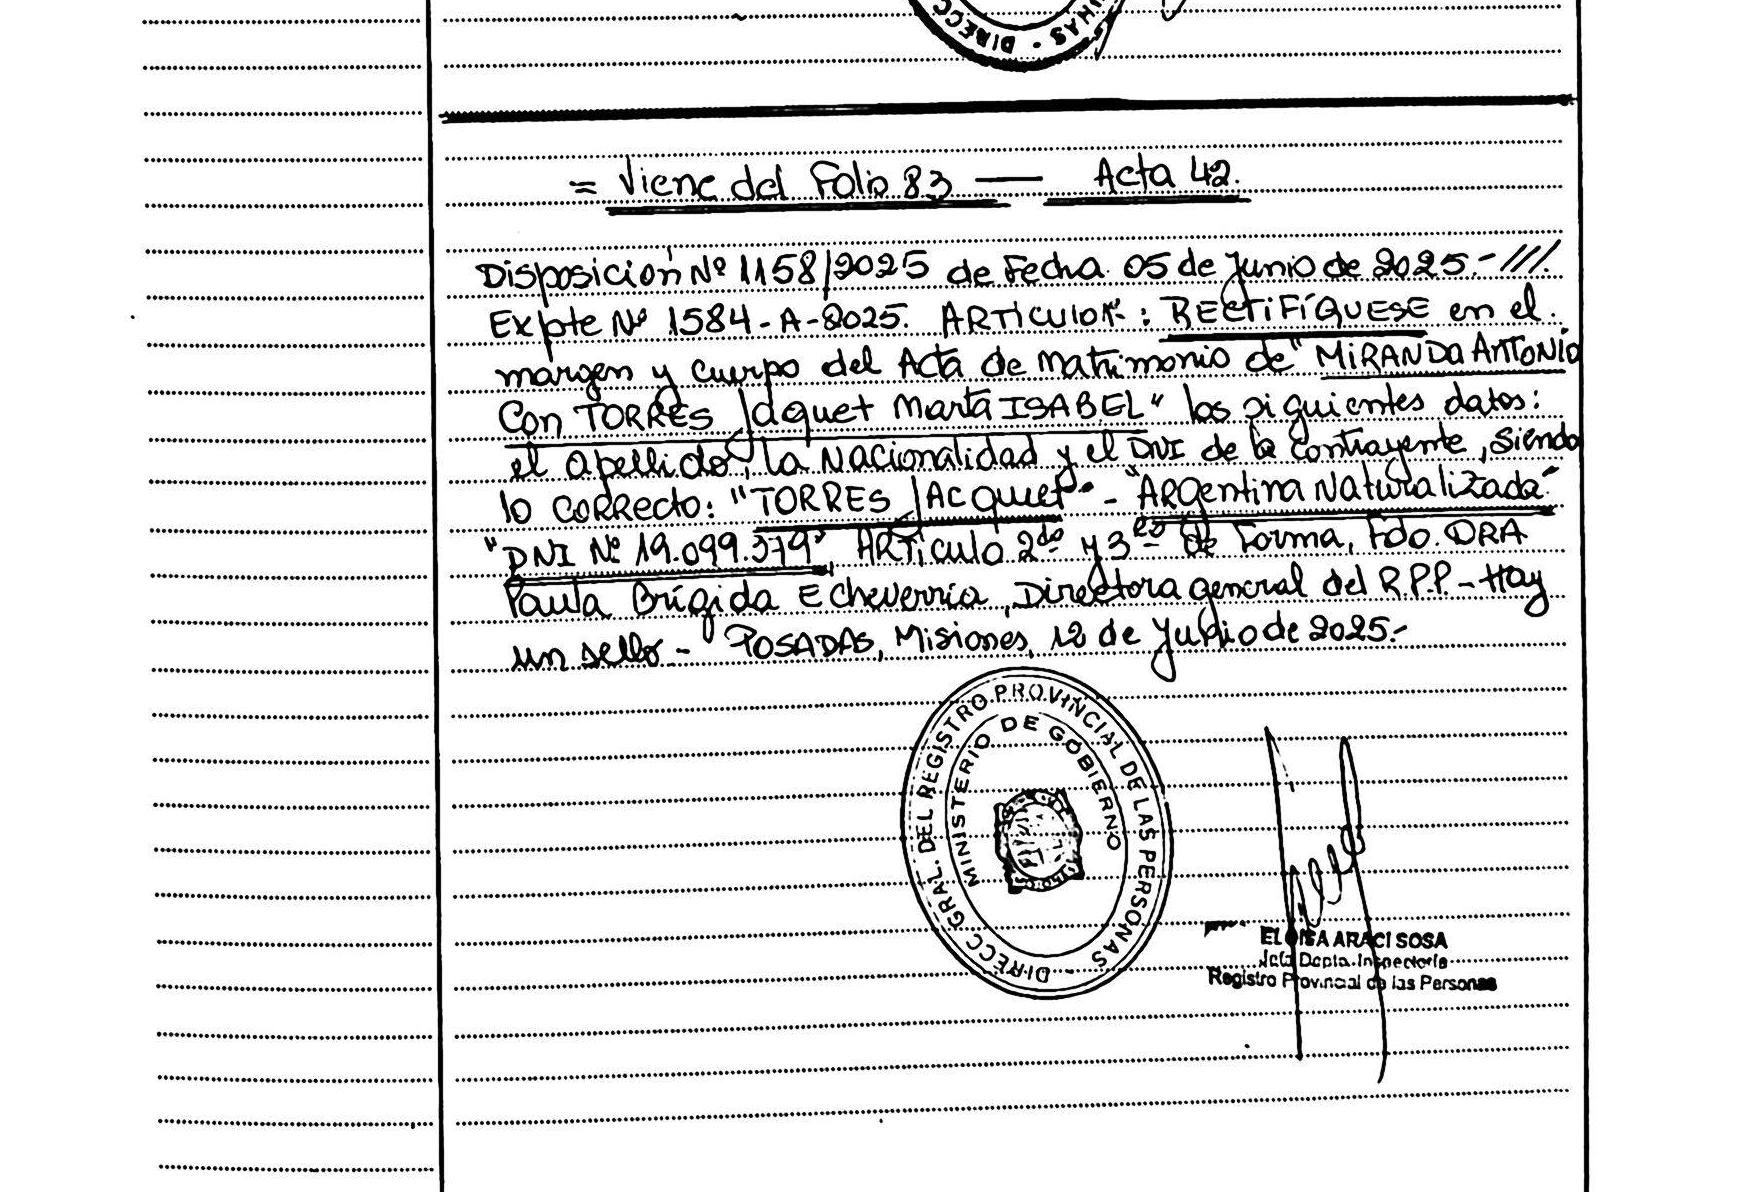 DIRECC
= Viene del Folio 83 — Acta 42.
Disposición Nº 1158/2025 de Fecha 05 de Junio de 2025.- ///.
Expte Nº 1584-A-2025. ARTICULO 1º: RECTIFÍQUESE en el
margen y cuerpo del Acta de Matrimonio de "MIRANDA ANTONIO
Con TORRES Jaquet Marta ISABEL" los siguientes datos:
el apellido, la Nacionalidad y el DNI de la Contrayente, Siendo
lo CORRECTO: "TORRES JACquet" - "ARgentina Naturalizada"
"DNI Nº 19.099.379" ARTiculo 2do y 3ro de Forma, Fdo. DRA
Paula Brígida Echeverria, Directora general del R.P.P. - Hay
un sello - POSADAS, Misiones, 12 de Junio de 2025.-
DIRECC GRAL. DEL REGISTRO PROVINCIAL DE LAS PERSONAS -
MINISTERIO DE GOBIERNO
ELOISA ARACI SOSA
Jefa Depto. Inspectoría
Registro Provincial de las Personas